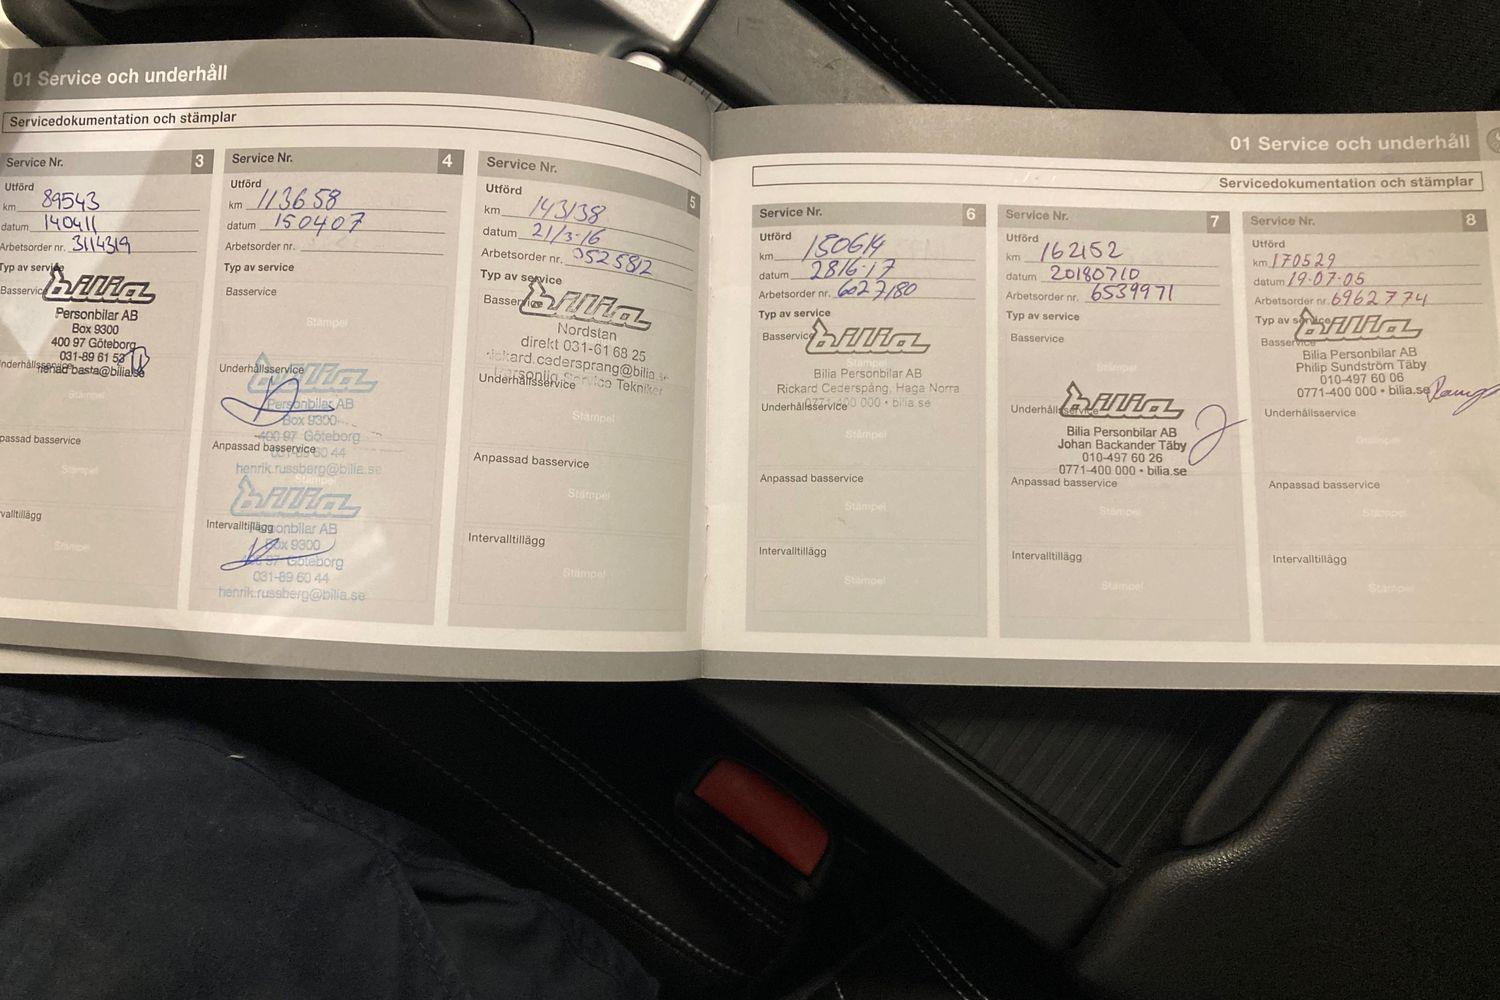 01 Service och underhåll
Servicedokumentation och stämplar
Service Nr. 3
Utförd
km 89543
datum 140411
Arbetsorder nr. 3114319
Typ av service
bilia
Basservice
Personbilar AB
Box 9300
400 97 Göteborg
031-89 61 53
Underhållsservice
Stämpel
Anpassad basservice
Stämpel
Intervalltillägg
Stämpel
Service Nr. 4
Utförd
km 113658
datum 150407
Arbetsorder nr.
Typ av service
Basservice
Stämpel
Underhållsservice
bilia
Personbilar AB
Box 9300
400 97 Göteborg
Anpassad basservice
031-89 60 44
henrik.russberg@bilia.se
Stämpel
bilia
Intervalltillägg
Personbilar AB
Box 9300
400 97 Göteborg
031-89 60 44
henrik.russberg@bilia.se
Service Nr. 5
Utförd
km 143138
datum 21/3-16
Arbetsorder nr. 3525812
Typ av service
bilia
Basservice
Nordstan
direkt 031-61 68 25
rickard.cedersprang@bilia.se
Personlig Service Tekniker
Underhållsservice
Stämpel
Anpassad basservice
Stämpel
Intervalltillägg
Stämpel
01 Service och underhåll
Servicedokumentation och stämplar
Service Nr. 6
Utförd
km 150614
datum 2816-17
Arbetsorder nr. 6027180
Typ av service
bilia
Basservice
Stämpel
Bilia Personbilar AB
Rickard Cederspång, Haga Norra
0771-400 000 • bilia.se
Underhållsservice
Stämpel
Anpassad basservice
Stämpel
Intervalltillägg
Stämpel
Service Nr. 7
Utförd
km 162152
datum 20180710
Arbetsorder nr. 6539971
Typ av service
Basservice
Stämpel
Underhållsservice
bilia
Bilia Personbilar AB
Johan Backander Täby
010-497 60 26
0771-400 000 • bilia.se
Anpassad basservice
Stämpel
Intervalltillägg
Stämpel
Service Nr. 8
Utförd
km 170529
datum 19-07-05
Arbetsorder nr. 6962774
Typ av service
bilia
Basservice
Bilia Personbilar AB
Philip Sundström Täby
010-497 60 06
0771-400 000 • bilia.se
Underhållsservice
Stämpel
Anpassad basservice
Stämpel
Intervalltillägg
Stämpel